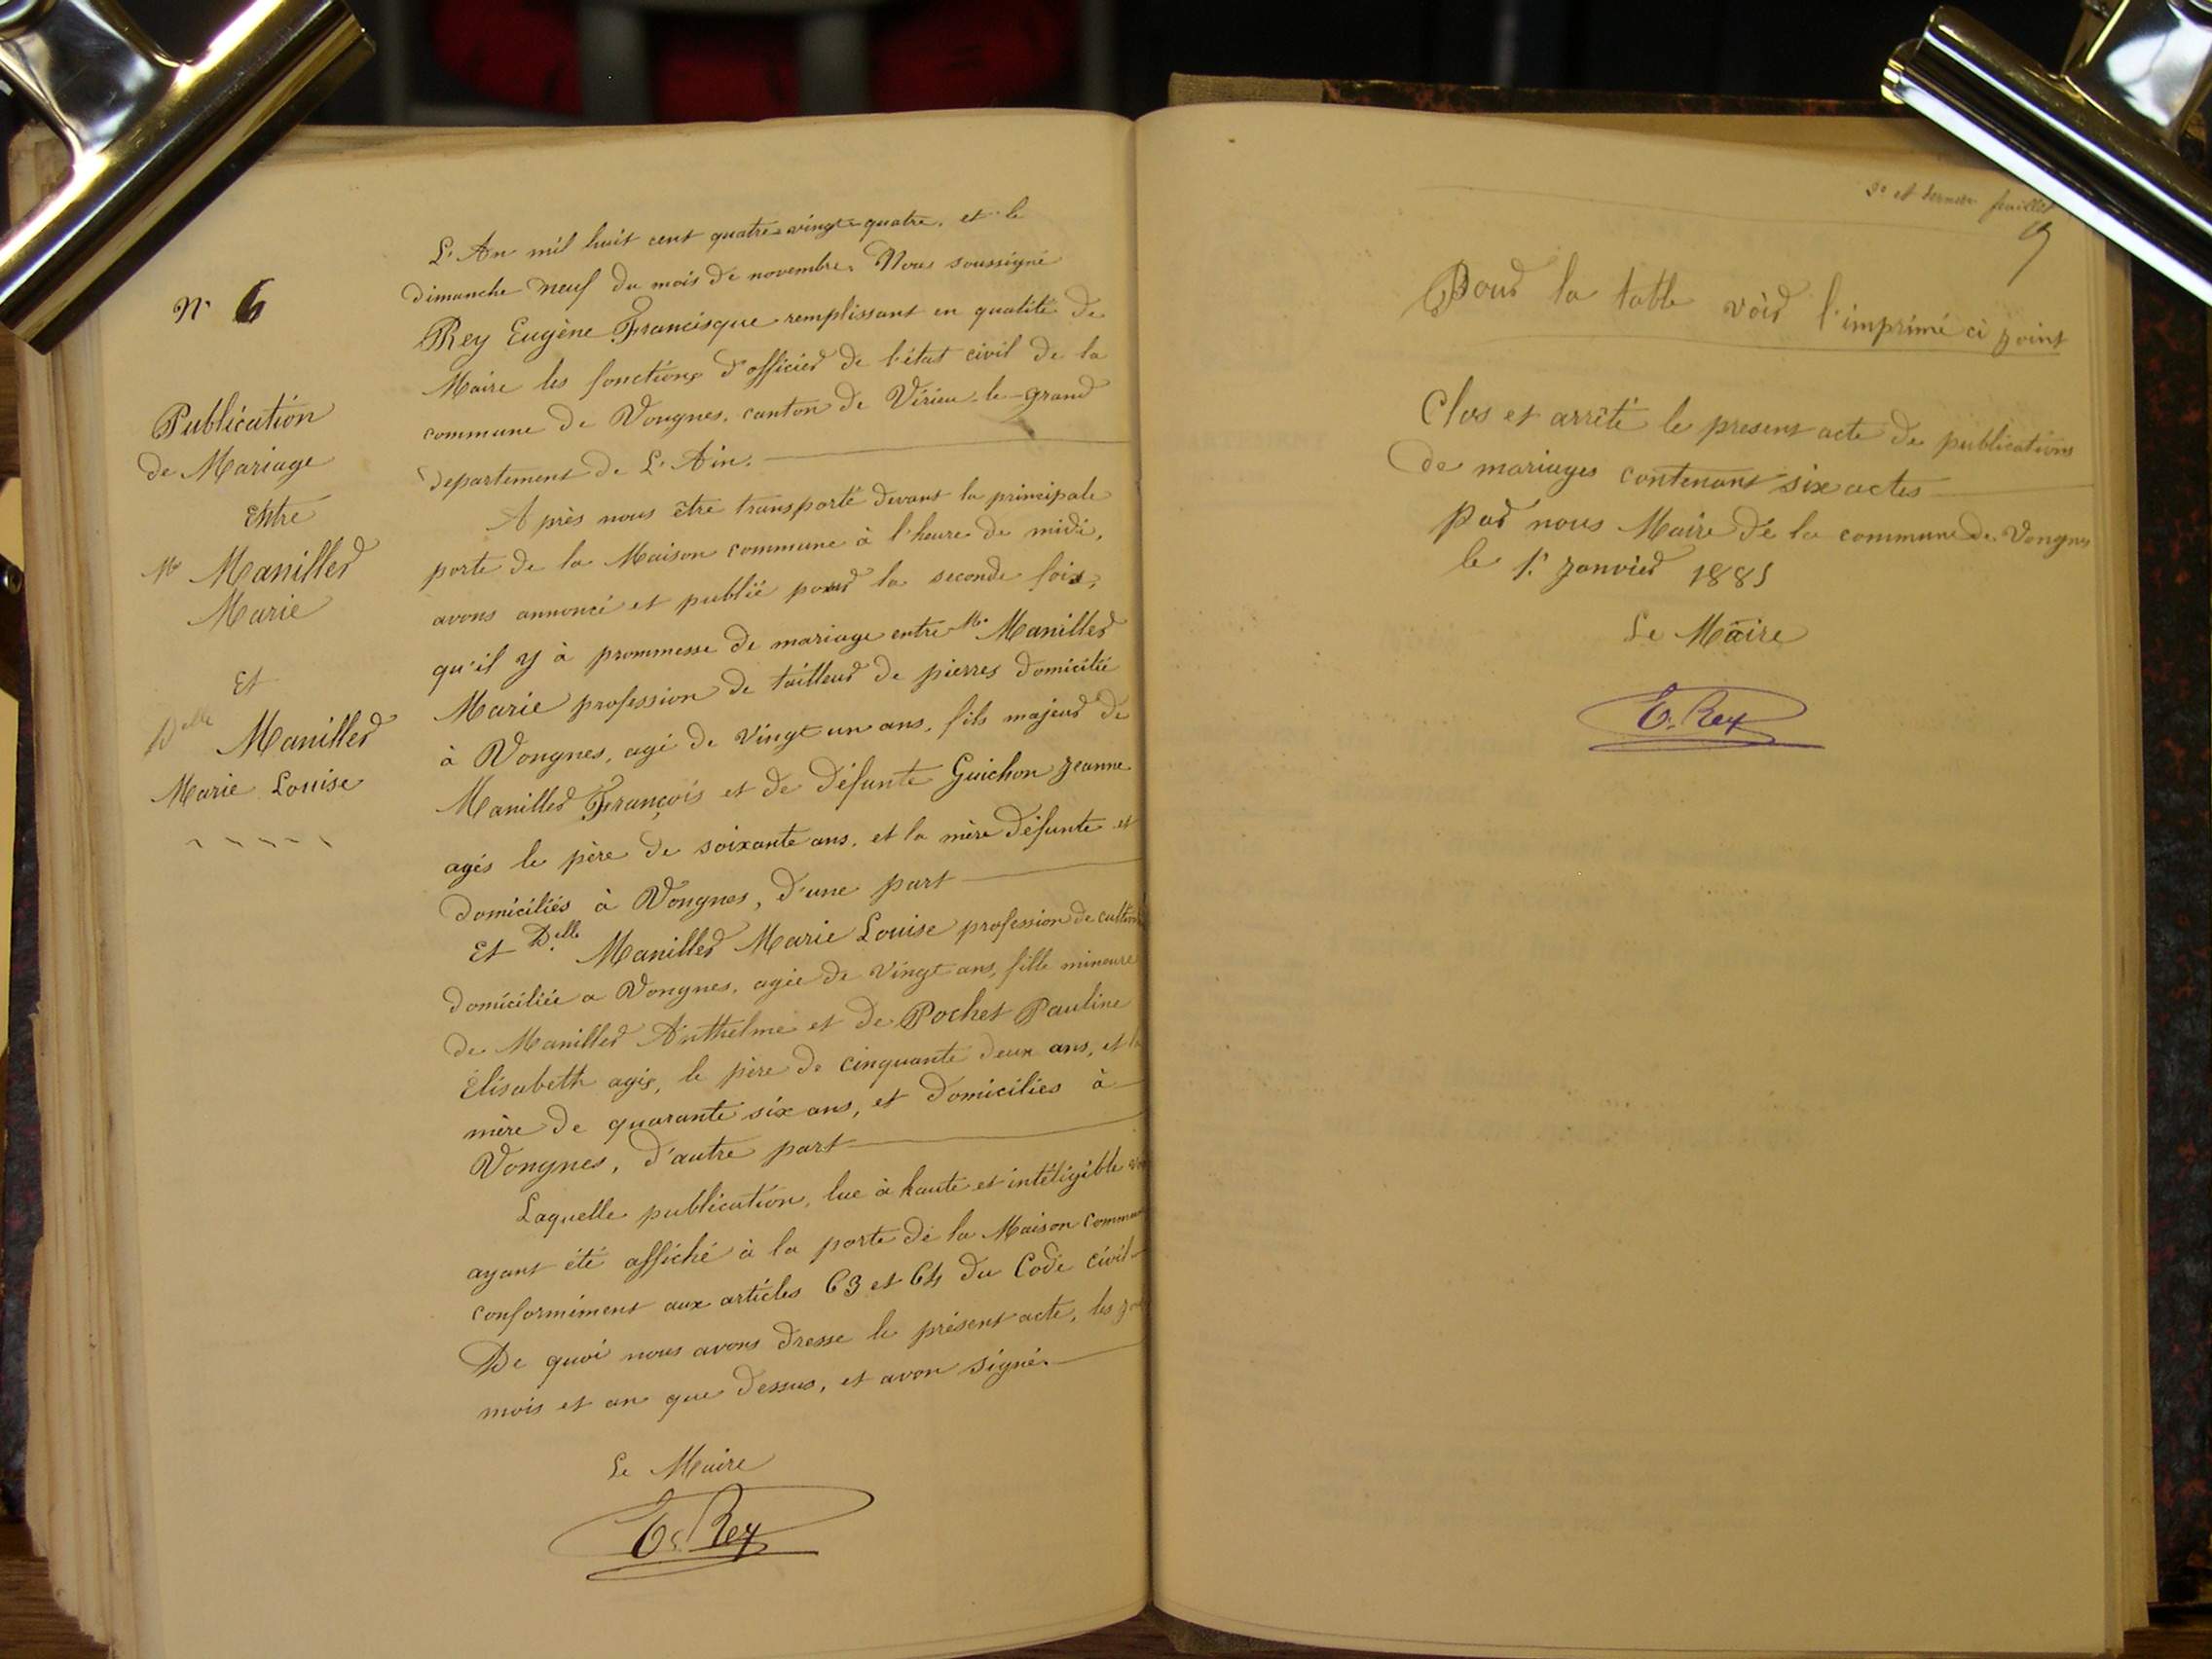 N° 6
Publication
de Mariage
Entre
Mr Maniller
Marie
Et
Delle Maniller
Marie Louise
L'An mil huit cent quatre-vingt-quatre, et le
dimanche neuf du mois de novembre. Nous soussigné
Rey Eugène Francisque remplissant en qualité de
Maire les fonctions d'officier de l'état civil de la
commune de Vongnes, canton de Virieu-le-grand
departement de L'Ain.
Après nous être transporté devant la principale
porte de la Maison commune à l'heure de midi,
avons annoncé et publié pour la seconde fois,
qu'il y à prommesse de mariage entre Mr Maniller
Marie profession de tailleur de pierres domicilié
à Vongnes, agé de vingt un ans, fils majeur de
Maniller François et de défunte Guichon Jeanne
agés le père de soixante ans, et la mère défunte et
domiciliés à Vongnes, d'une part
Et Delle Maniller Marie Louise profession de
domiciliée a Vongnes, agée de vingt ans, fille mineure
de Maniller Anthelme et de Pochet Pauline
Élisabeth agés, le père de cinquante deux ans, et la
mère de quarante six ans, et domiciliés à
Vongnes, d'autre part
Laquelle publication, lue à haute et intéligible
ayant été affiché à la porte de la Maison
conformément aux articles 63 et 64 du Code civil
De quoi nous avons dresse le présent acte, les
mois et an que dessus, et avon signé.
Le Maire
E. Rey
9e et dernier feuillet
9
Pour la table voir l'imprimé ci joint
Clos et arrêté le present acte de publications
de mariages contenant six actes
par nous Maire de la commune de Vongnes
le 1er Janvier 1885
Le Maire
E. Rey